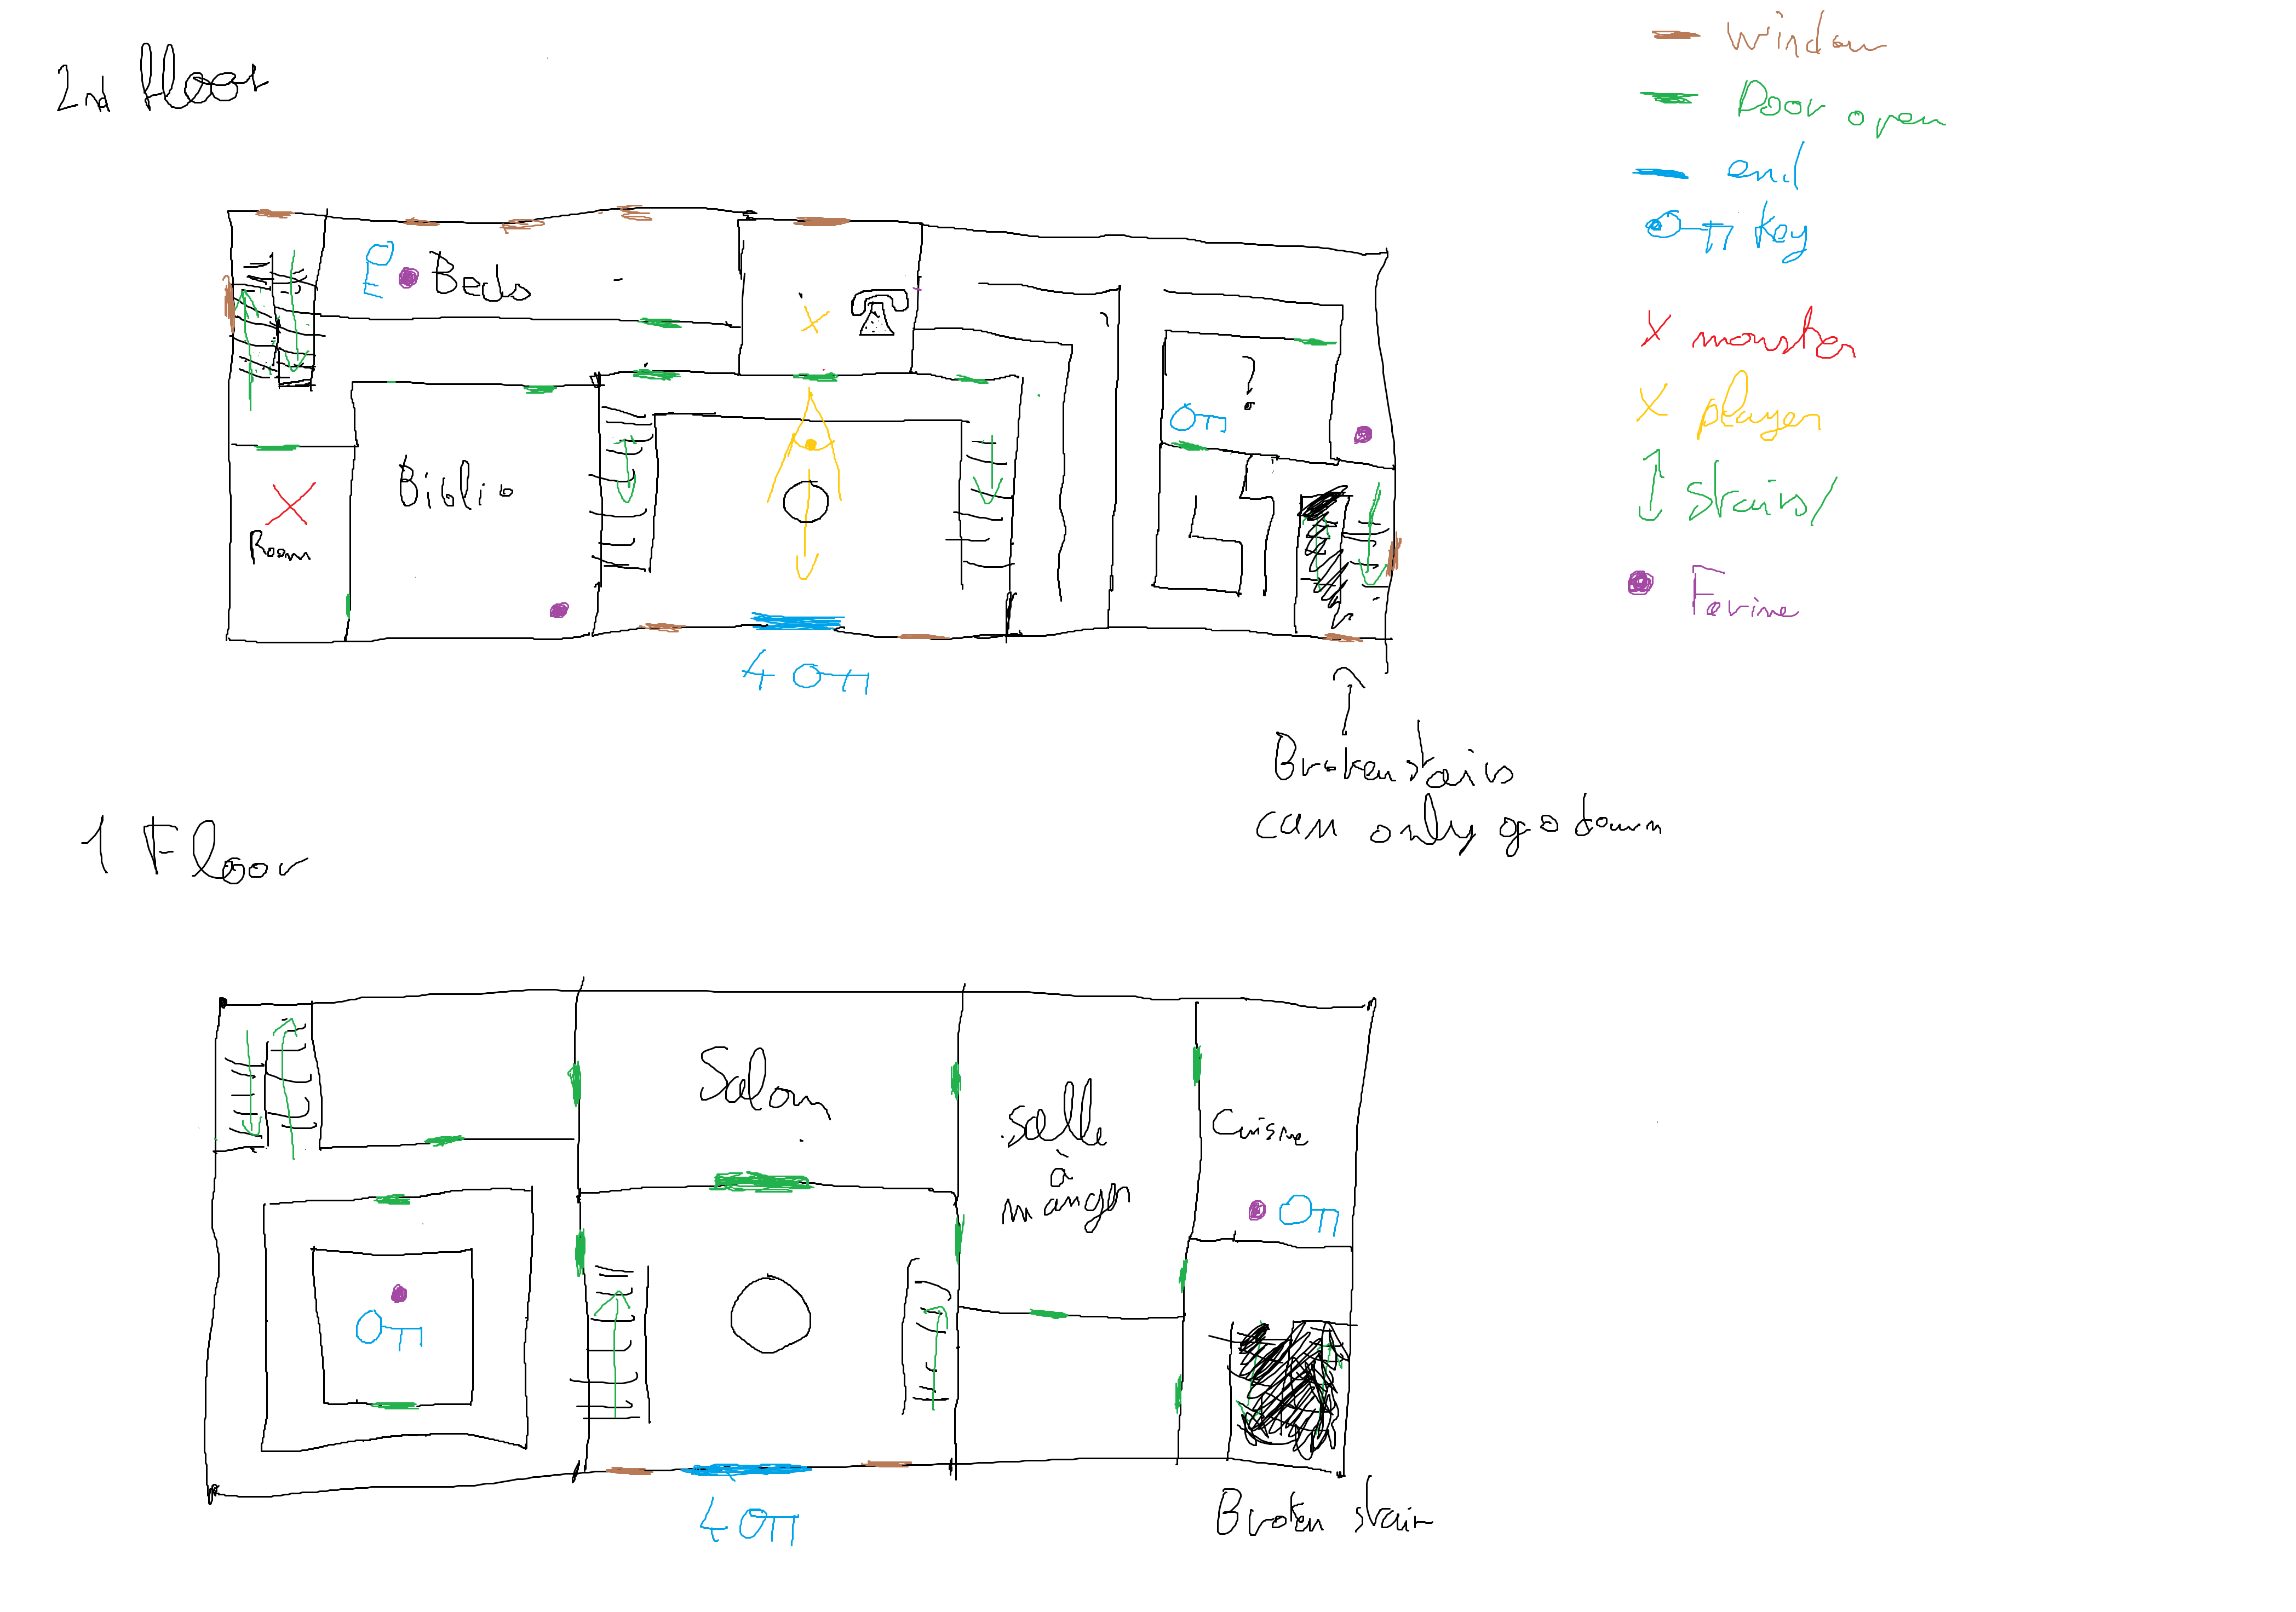 2nd floor
window
Door open
end
key
X monster
X player
stairs/
Farine
Beds
?
Biblio
Room
4
Broken stairs
can only go down
1 Floor
Salon
salle
à
manger
Cuisine
4
Broken stair